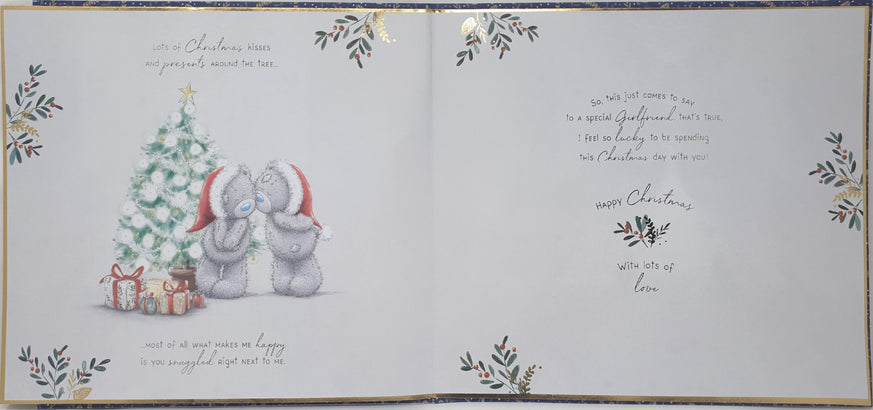 Lots of Christmas kisses
and presents around the tree...
...most of all what makes me happy
is you snuggled right next to me.
So, this just comes to say
to a special Girlfriend that's true,
I feel so lucky to be spending
this Christmas day with you!
Happy Christmas
With lots of
love